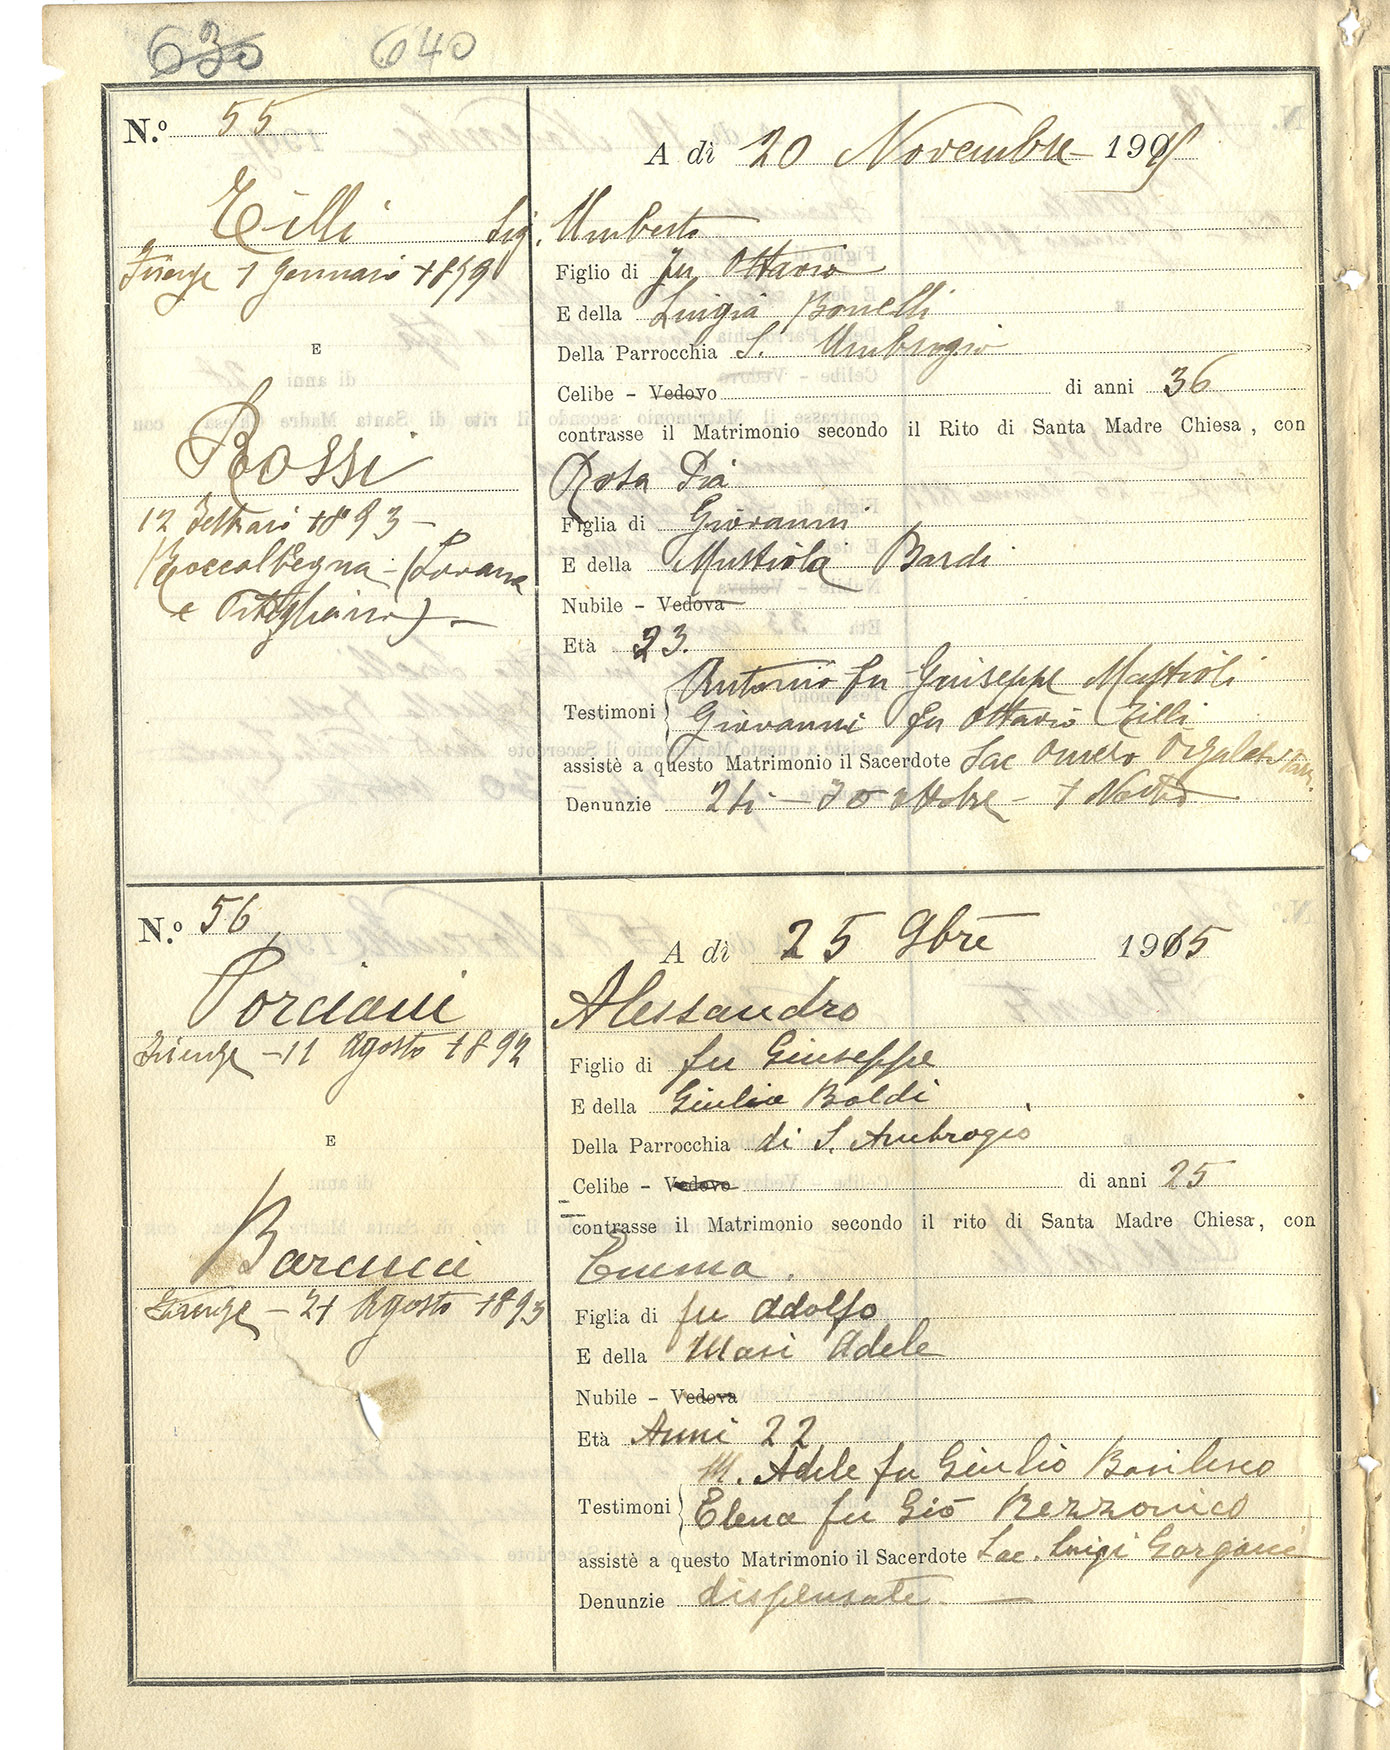 630 640
N.º 55
A dì 20 Novembre 1915
Tilli Sig. Umberto
Firenze 1 Gennaio 1879
Figlio di fu Ottavio
E della Luigia Bonelli
E
Della Parrocchia S. Ambrogio
Celibe - Vedovo di anni 36
contrasse il Matrimonio secondo il Rito di Santa Madre Chiesa, con
Rossi
Rosa Pia
12 Febbraio 1893 -
Figlia di Giovanni
Roccalbegna - (Sovana
E della Mustiola Bardi
e Pitigliano) -
Nubile - Vedova
Età 23.
Testimoni Antonio fu Giuseppe Mastioli
Giovanni fu Ottavio Tilli
assistè a questo Matrimonio il Sacerdote Sac Omero
Denunzie 24 - 30 ottobre - 1 Nov
N.º 56
A dì 25 9bre 1915
Porciani
Alessandro
Firenze - 11 Agosto 1892
Figlio di fu Giuseppe
E della Giulia Baldi
E
Della Parrocchia di S. Ambrogio
Celibe - Vedovo di anni 25
contrasse il Matrimonio secondo il rito di Santa Madre Chiesa, con
Barcucci
Emma.
Firenze - 21 Agosto 1893
Figlia di fu Adolfo
E della Masi Adele
Nubile - Vedova
Età Anni 22
Testimoni M. Adele fu Giulio Basilisco
Elena fu Giō Rezzonico
assistè a questo Matrimonio il Sacerdote Sac. Luigi Gargani
Denunzie dispensate. -